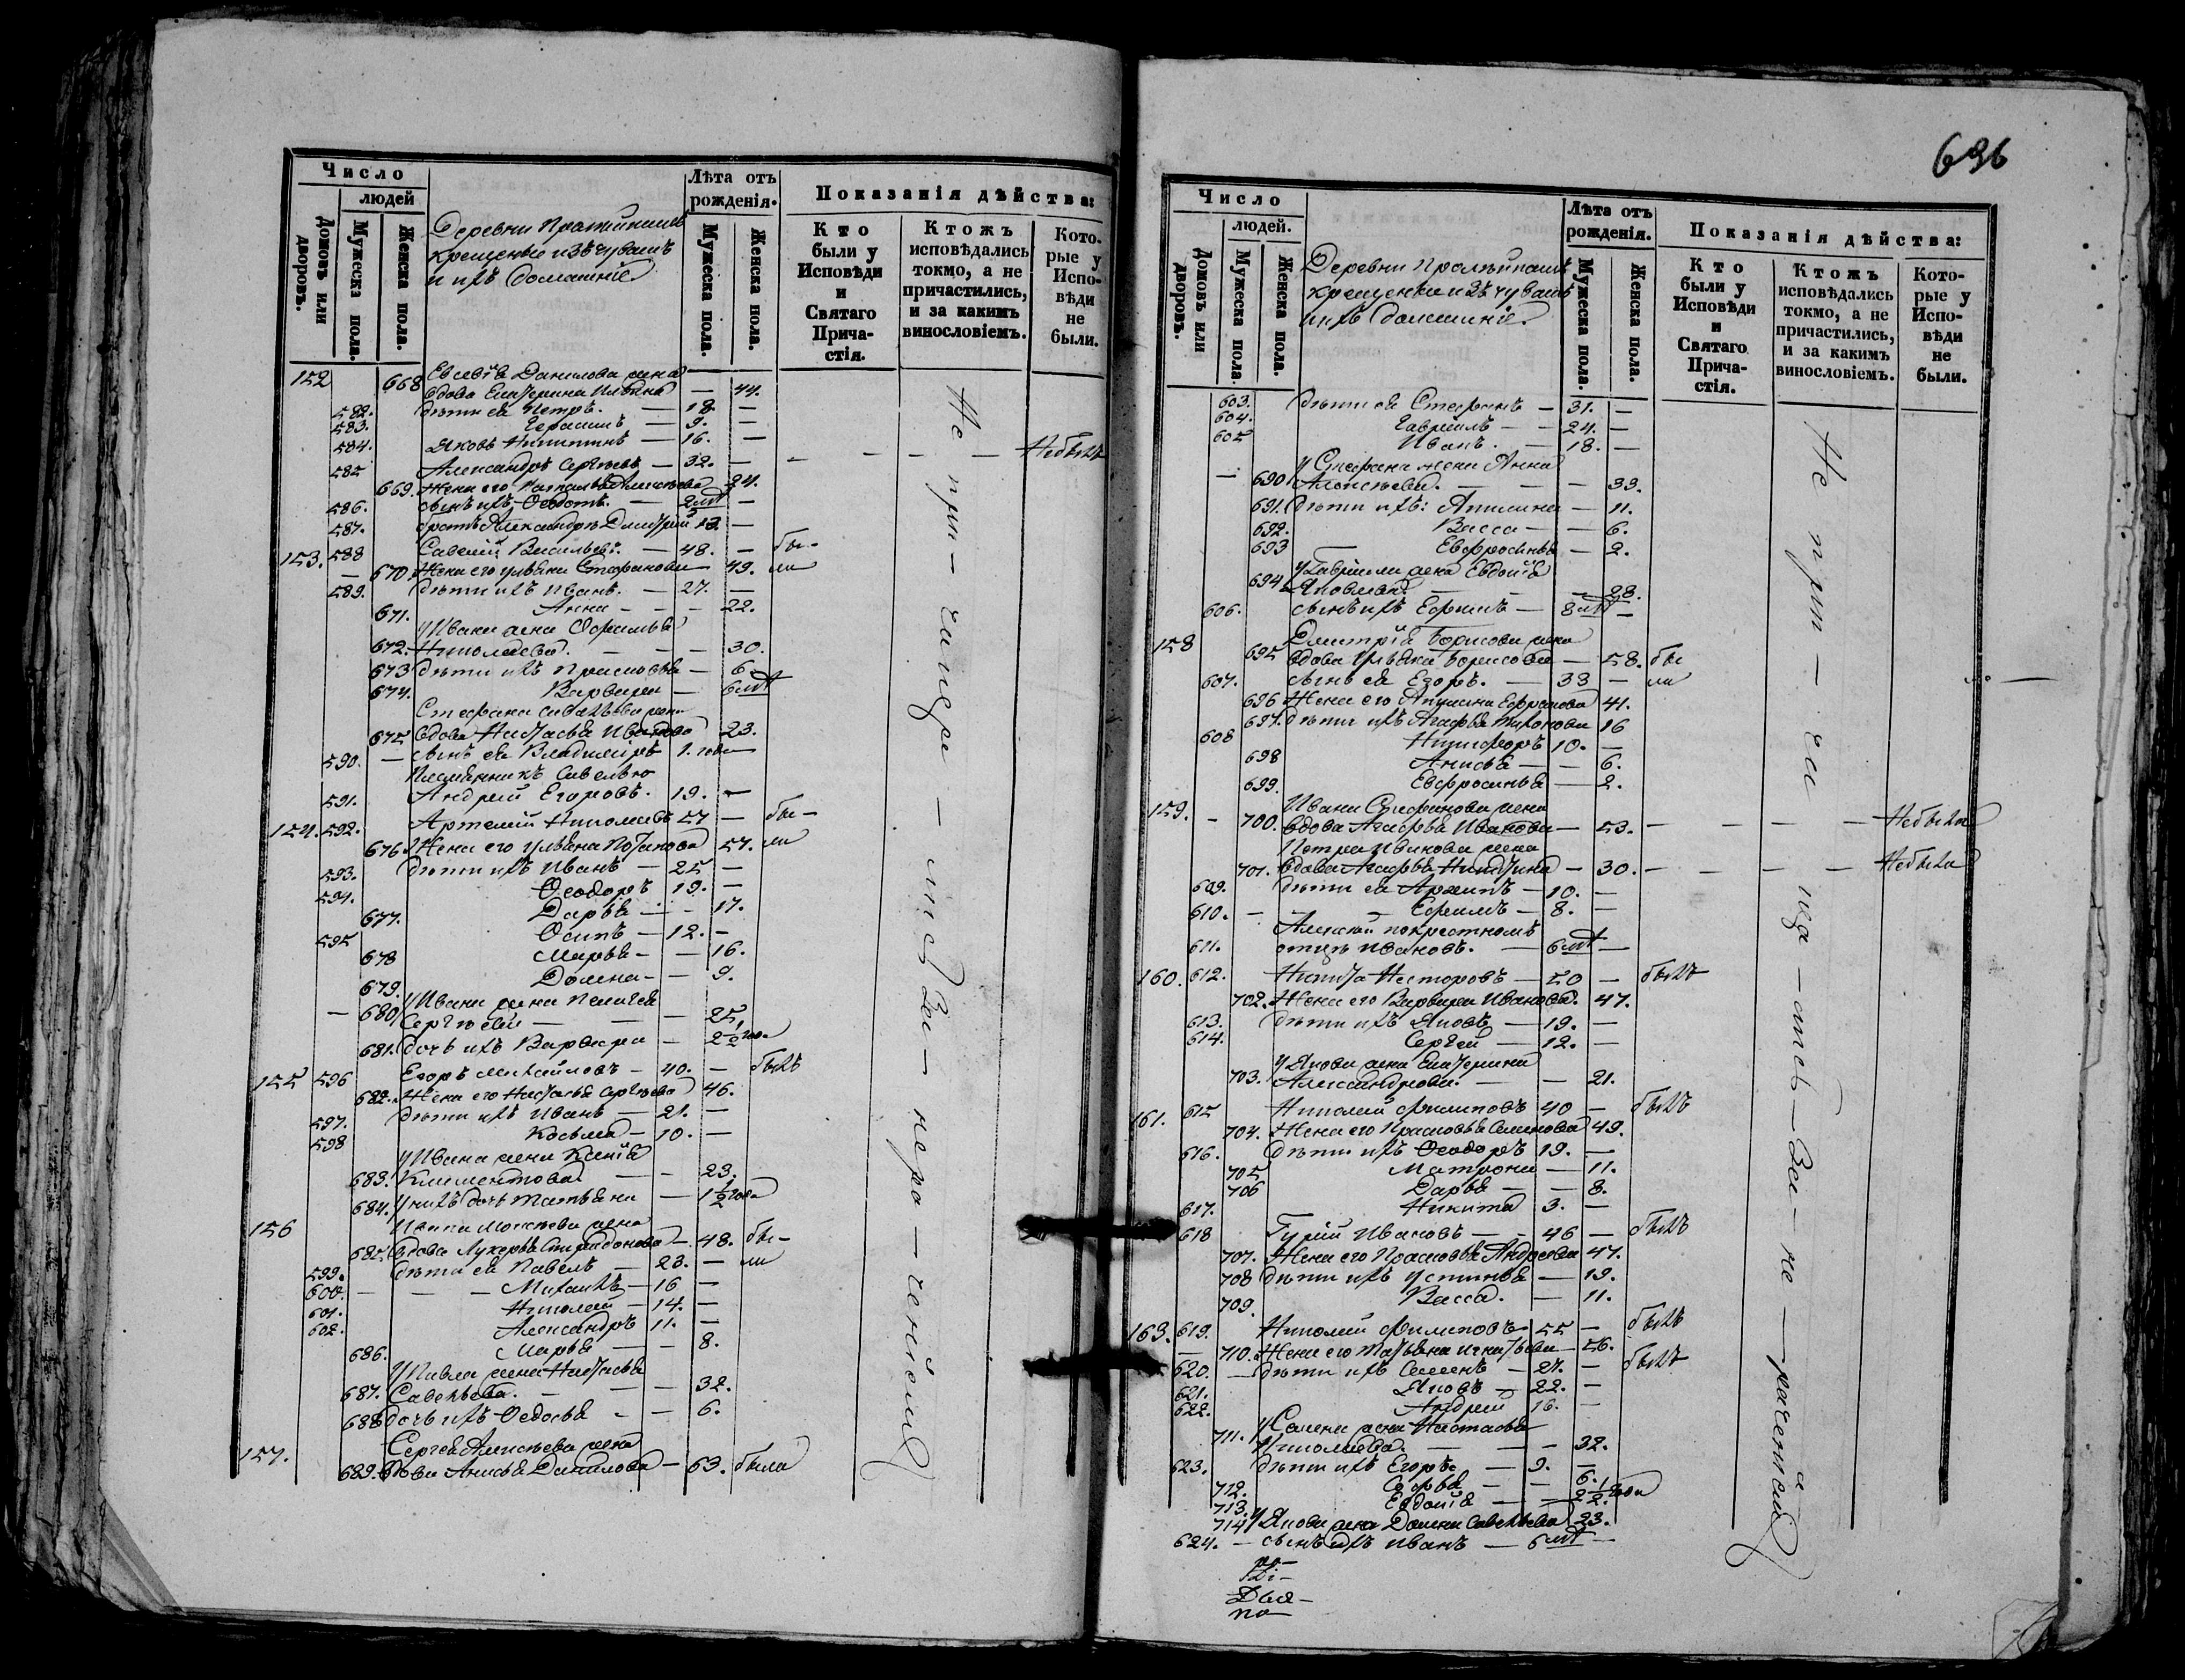 Число
людей
Домовъ или дворовъ.
Мужеска пола.
Женска пола.
Деревни
крещеные изъ чувашъ
и ихъ домашніе
Лѣта отъ рожденія.
Мужеска пола.
Женска пола.
Показанія дѣйства:
Кто были у Исповѣди и Святаго Прича-стія.
Ктожъ исповѣдались токмо, а не причастились, и за какимъ винословіемъ.
Кото-рые у Испо-вѣди не были.
152 668 Евсевія Данилова жена
вдова Екатерина Ильина — 44.
582. дѣти ея Петръ. — 18. —
583. Герасимъ — 9. —
584. Яковъ Никитинъ — 16. —
585 Александръ Сергѣевъ — 32. — — — — — Небылъ
669. Жена его Алексѣева 24.
586. сынъ ихъ Ѳедотъ. — 2 мѣ —
587. братъ Александра Димитрій 13. —
153. 588 Савелій Васильевъ. — 48. — бы-
— 670 Жена его Ульяна Стефанова 49. ли
589. дѣти ихъ Иванъ. — 27. —
671. Анна — — — 22.
у Ивана жена Офимья
672. Николаева. — — — 30.
673 дѣти ихъ Прасковья — 6
674. Варвара — 6 мѣ
Стефана Савельева жена
675 вдова Настасья Иванова 23.
590. — сынъ ея Владимиръ 1. года
Племянникъ Савелью
591. Андрей Егоровъ. 19. —
154. 592. Артемій Николаевъ 57 — бы-
676. Жена его Ульяна Потапова 57. ли
593. дѣти ихъ Иванъ — 25 —
594. Ѳеодоръ 19. —
677. Дарья — — 17.
595 Осипъ — 12. —
678 Марья — — 16.
679. Домна — — 9.
у Ивана жена Пелагея
— 680 Сергѣева — — — 25,
681. дочь ихъ Варвара — 2½ года
155 596 Егоръ Михайловъ — 40. — былъ
682. Жена его Настасья Сергѣева 46.
597. дѣти ихъ Иванъ — 21. —
598 Косьма — 10. —
у Ивана жена Ксенія
683. Климентова — — 23.
684. у нихъ дочь Татьяна — 1½ года
156 Ивана Моисѣева жена
685. вдова Лукерья Спиридонова — 48. бы-
599. дѣти ея Павелъ — 23. — ли
600. — — — Михаилъ — 16 —
601. Николай — 14. —
602. Александръ 11. —
686. Марья — — 8.
у Павла жена Настасья
687. Савельева. — — — 32.
688 дочь ихъ Ѳедосья — — 6.
157. Сергея Алексѣева жена
689. вдова Анисья Данилова — 63. была
636
Число
людей.
Домовъ или дворовъ.
Мужеска пола.
Женска пола.
Деревни
крещеные изъ чувашъ
ихъ домашніе.
Лѣта отъ рожденія.
Мужеска пола.
Женска пола.
Показанія дѣйства:
Кто были у Исповѣди и Святаго Прича-стія.
Ктожъ исповѣдались токмо, а не причастились, и за какимъ винословіемъ.
Кото-рые у Испо-вѣди не были.
603. дѣти ея Стефанъ — 31. —
604. Гавріилъ — — 24. —
605 Иванъ. — 18. —
у Стефана жена Анна
— 690 Алексѣева. — — — 33.
691. дѣти ихъ: Акилина — 11.
692. Васса — — 6.
693 — Евфросинья — 2.
у Гавріила жена Евдокія
694 Яковлева — — — 28.
606. сынъ ихъ Ефимъ — 8 мѣ —
158 Дмитрія Борисова жена
695 вдова Ульяна Борисова — 58. бы
607. сынъ ея Егоръ. — 33 — ли
696 Жена его Акулина 41.
697. дѣти ихъ Агафья 16
608 Никифоръ 10. —
698 Анисья — — 6.
699. Евфросинья — 2.
159. Ивана Стефанова жена
— 700. вдова Агафья Иванова — 53. — — — — Небыла
Петра Иванова жена
701. вдова Агафья Никитина — 30. — — — — Небыла
609. дѣти ея Архипъ — 10. —
610. — — — Ефимъ — 8. —
Алексѣй по крестномъ
611. отцѣ Ивановъ. — 6 мѣ —
160. 612. Никита Несторовъ — 50 — былъ
702. Жена его Варвара Иванова. 47.
613. дѣти ихъ Яковъ — 19. —
614. Сергей — 12. —
у Якова жена Екатерина
703. Александрова. — — 21.
161. 615 Николай Филиповъ 40 — былъ
704. Жена его Прасковья Семенова 49.
616. дѣти ихъ Ѳеодоръ 19. —
705 Матрона — 11.
706 Дарья — — 8.
617. Никита 3. —
618 Гурій Ивановъ — — 46 — былъ
707. Жена его Прасковья Андреева 47.
708 дѣти ихъ Устинья — 19.
709. Васса. — 11.
163. 619. Николай Филиповъ 55 — былъ
— 710. Жена его Татьяна Игнатьева — 56.
620. — дѣти ихъ Семенъ — 27. — былъ
621. Яковъ — 22. —
622. Андрей 16. —
у Семена жена Настасья
711. Николаева. — — — 32.
623. дѣти ихъ Егоръ. — 9. —
712. Софья — — 6.
713. Евдокія — — 2½ года
714 у Якова жена Домна Савельева 23.
624. — сынъ ихъ Иванъ — 6 мѣ —